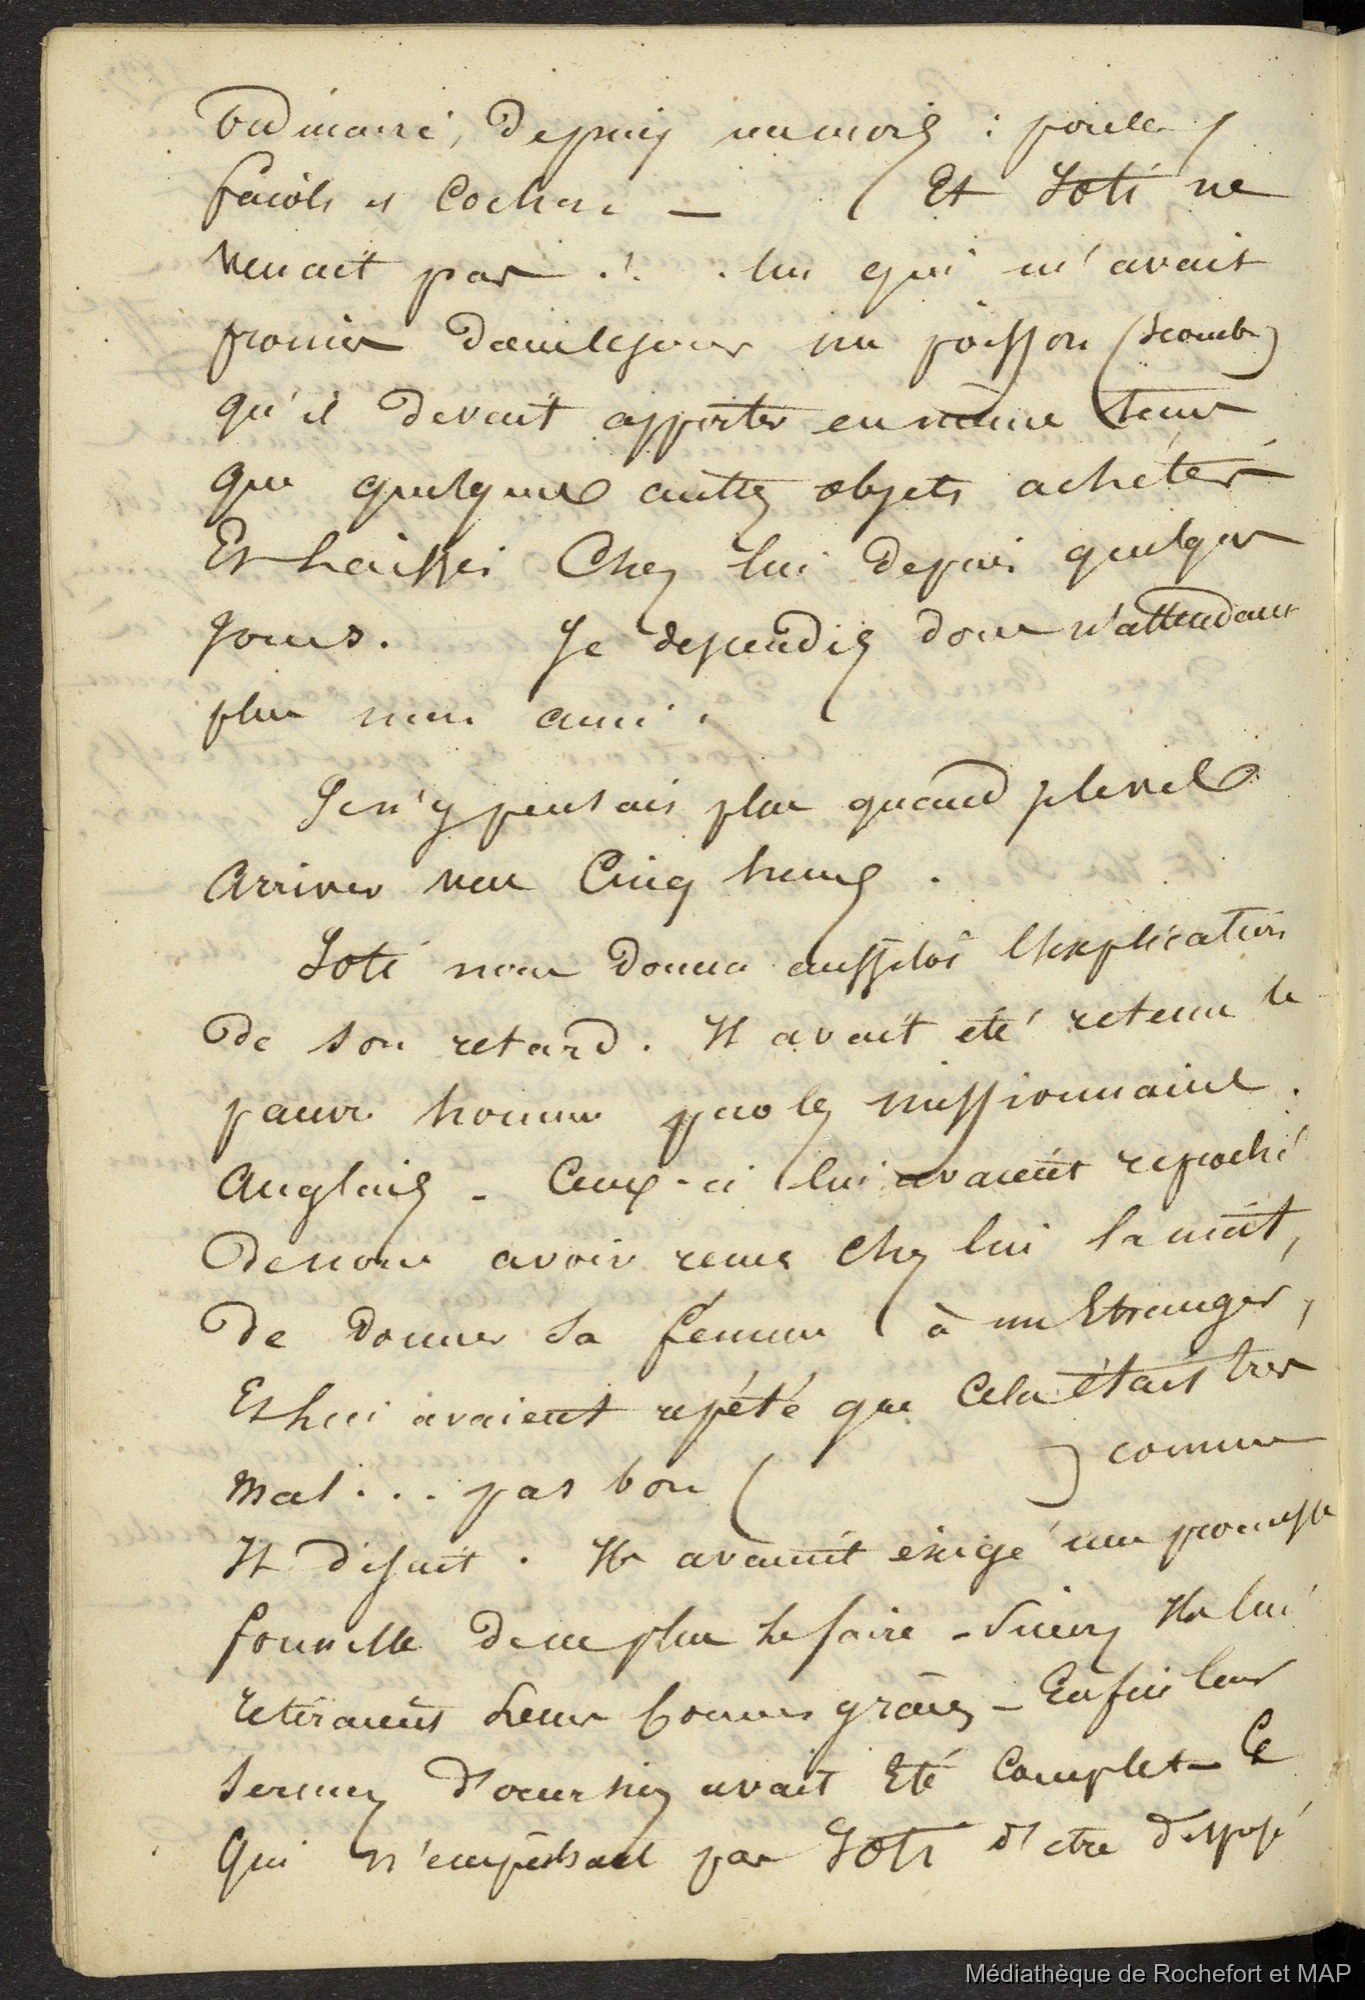 Ordinaire, Depuis un mois : poule,
fayols et Cochon — ( Et Soti ne
venait pas .!. lui qui m'avait
promis d'ailleurs un poisson (scombre)
qu'il devait apporter en même tems
que quelques autres objets achétés
Et laissés Chez lui depuis quelques
Jours. Je descendis donc n'attendant
plus mon ami.
Je n'y pensais plus quand je le vis
Arriver vers Cinq heures.
Soti nous donna aussitôt l'Explication
De son retard. Il avait été retenu le
pauvre homme par les missionnaires
Anglais - Ceux-ci lui avaient reproché
De nous avoir reçus Chez lui la nuit,
De donner sa femme à un Etranger,
Et lui avaient répété que Cela était très
mal ... pas bon ( ) comme
Il disait. Ils avaient éxigé une promesse
formelle De ne plus le faire - Sinon Ils lui
retiraient Leurs bonnes grâces - Enfin leur
sermon avait Eté Complet - Ce
Qui n'empêchait pas Soti d'etre disposé
Médiathèque de Rochefort et MAP